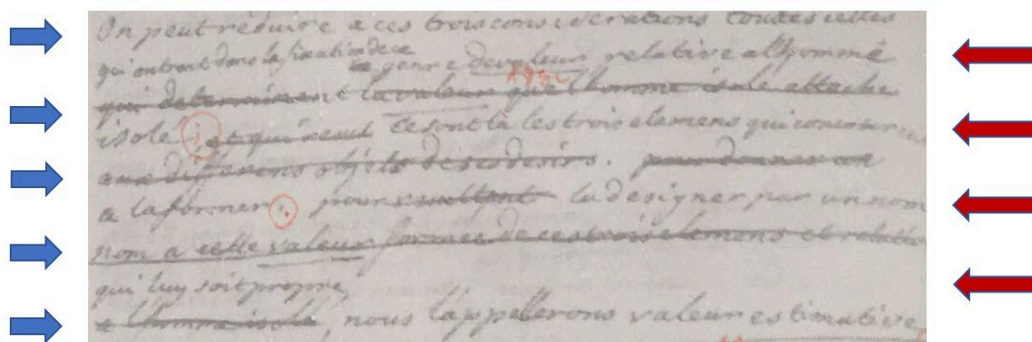 On peut réduire a ces trois considerations toutes celles
qui entrent dans la fixation de ce
ce genre de valeur relative a l'homme
qui determinent la valeur que l'homme isolé attache
isolé ; et qui veut ce sont là les trois elemens qui concourent
aux differens objets de ses desirs. pour donner un
a la former. pour la designer par un nom
nom a cette valeur formée de ces trois elemens et relative
qui luy soit propre,
a l'homme isolé, nous l'appellerons valeur estimative,